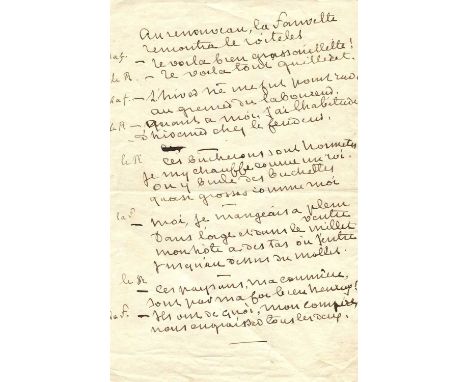 Au renouveau, la Fauvette
rencontra le roitelet
la f. - Te voilà bien grassouillette!
le R. - Te voilà tout guilleret.
la f. - L'hiver ne me fut point rude
au grenier du laboureur.
le R - Quant à moi j'ai l'habitude
D'hiverner chez le fendeur.
le R Ces bûcherons sont honnêtes
Je my chauffe comme un roi.
On y brule des buchettes
quasi grosses comme moi
la f. - Moi, je mangeais à plein ventre
Dans l'orge et dans le millet
mon hôte a des tas où j'entre
Jusqu'au dessus du mollet.
le R - Ces paysans, ma commère,
sont par ma foi bien heureux!
la f. - Ils ont de quoi, mon compère
nous engraisser tous les deux.